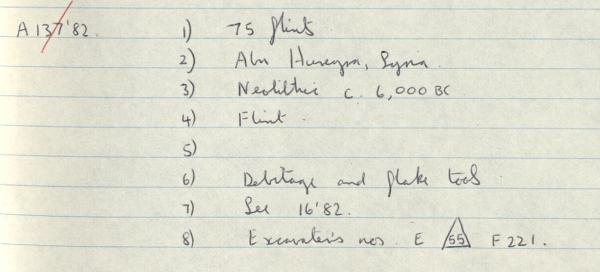 A 137'82. 1) 75 flints
2) Abu Hureyra, Syria.
3) Neolithic c. 6,000 BC
4) Flint.
5)
6) Debitage and flake tools
7) See 16'82.
8) Excavater's nos. E 55 F 221.